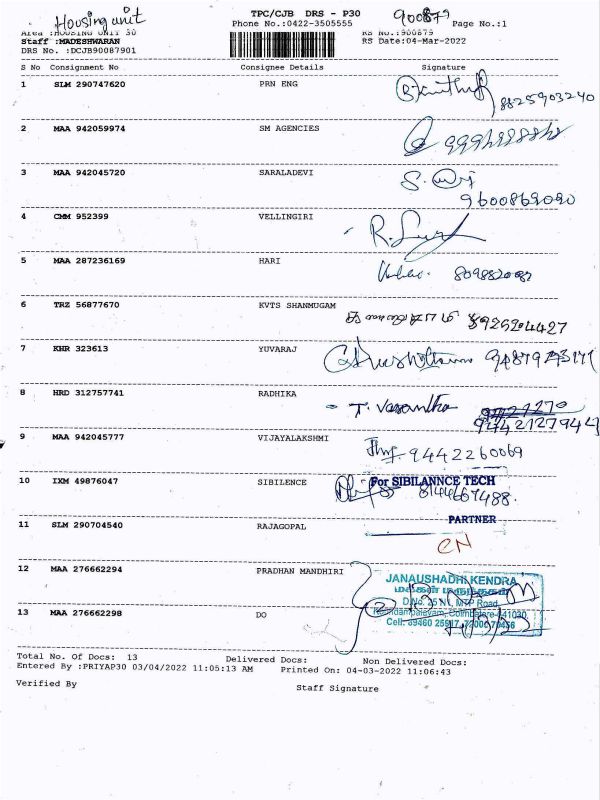 Housing unit
TPC/CJB DRS - P30
900879
Phone No.:0422-3505555
Page No.:1
Area :HOUSING UNIT 30
RS No.:900879
Staff :MADESHWARAN
RS Date:04-Mar-2022
DRS No. :DCJB90087901
S No Consignment No Consignee Details Signature
1 SLM 290747620 PRN ENG
8825903240
2 MAA 942059974 SM AGENCIES
3 MAA 942045720 SARALADEVI
9600869090
4 CMM 952399 VELLINGIRI
5 MAA 287236169 HARI
6 TRZ 56877670 KVTS SHANMUGAM
7 KHR 323613 YUVARAJ
8 HRD 312757741 RADHIKA T. Vasantha
9 MAA 942045777 VIJAYALAKSHMI 9442260069
10 IXM 49876047 SIBILENCE For SIBILANNCE TECH
8144667488
PARTNER
11 SLM 290704540 RAJAGOPAL
CN
12 MAA 276662294 PRADHAN MANDHIRI
JANAUSHADHI KENDRA
மக்கள் மருந்தகம்
13 MAA 276662298 DO
Total No. Of Docs: 13 Delivered Docs: Non Delivered Docs:
Entered By :PRIYAP30 03/04/2022 11:05:13 AM Printed On: 04-03-2022 11:06:43
Verified By Staff Signature